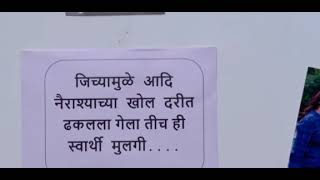 जिच्यामुळे आदि
नैराश्याच्या खोल दरीत
ढकलला गेला तीच ही
स्वार्थी मुलगी....